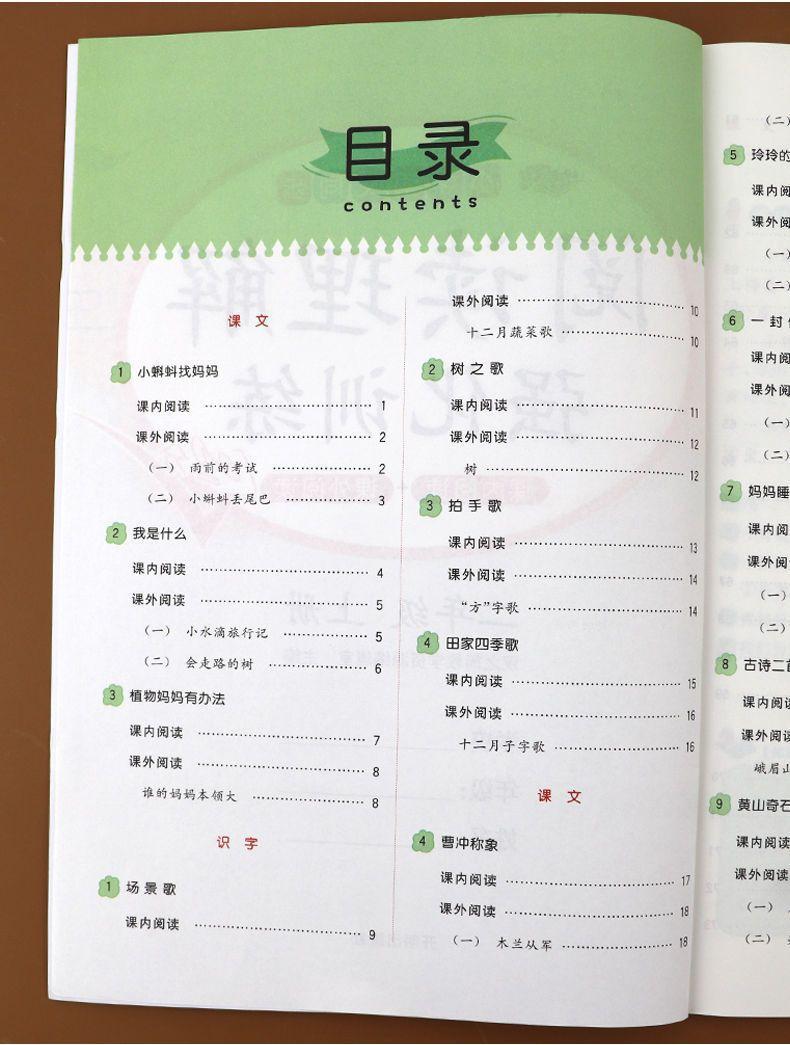 目录
contents
课文
1 小蝌蚪找妈妈
课内阅读 1
课外阅读 2
（一） 雨前的考试 2
（二） 小蝌蚪丢尾巴 3
2 我是什么
课内阅读 4
课外阅读 5
（一） 小水滴旅行记 5
（二） 会走路的树 6
3 植物妈妈有办法
课内阅读 7
课外阅读 8
谁的妈妈本领大 8
识字
1 场景歌
课内阅读 9
课外阅读 10
十二月蔬菜歌 10
2 树之歌
课内阅读 11
课外阅读 12
树 12
3 拍手歌
课内阅读 13
课外阅读 14
“方”字歌 14
4 田家四季歌
课内阅读 15
课外阅读 16
十二月子字歌 16
课文
4 曹冲称象
课内阅读 17
课外阅读 18
（一） 木兰从军 18
（二）
5 玲玲的
课内阅
课外阅
（一）
（二）
6 一封
课内阅
课外阅
（一）
（二）
7 妈妈睡
课内阅
课外阅
（一）
（二）
8 古诗二首
课内阅
课外阅
峨眉山
9 黄山奇石
课内阅
课外阅
（一）
（二）